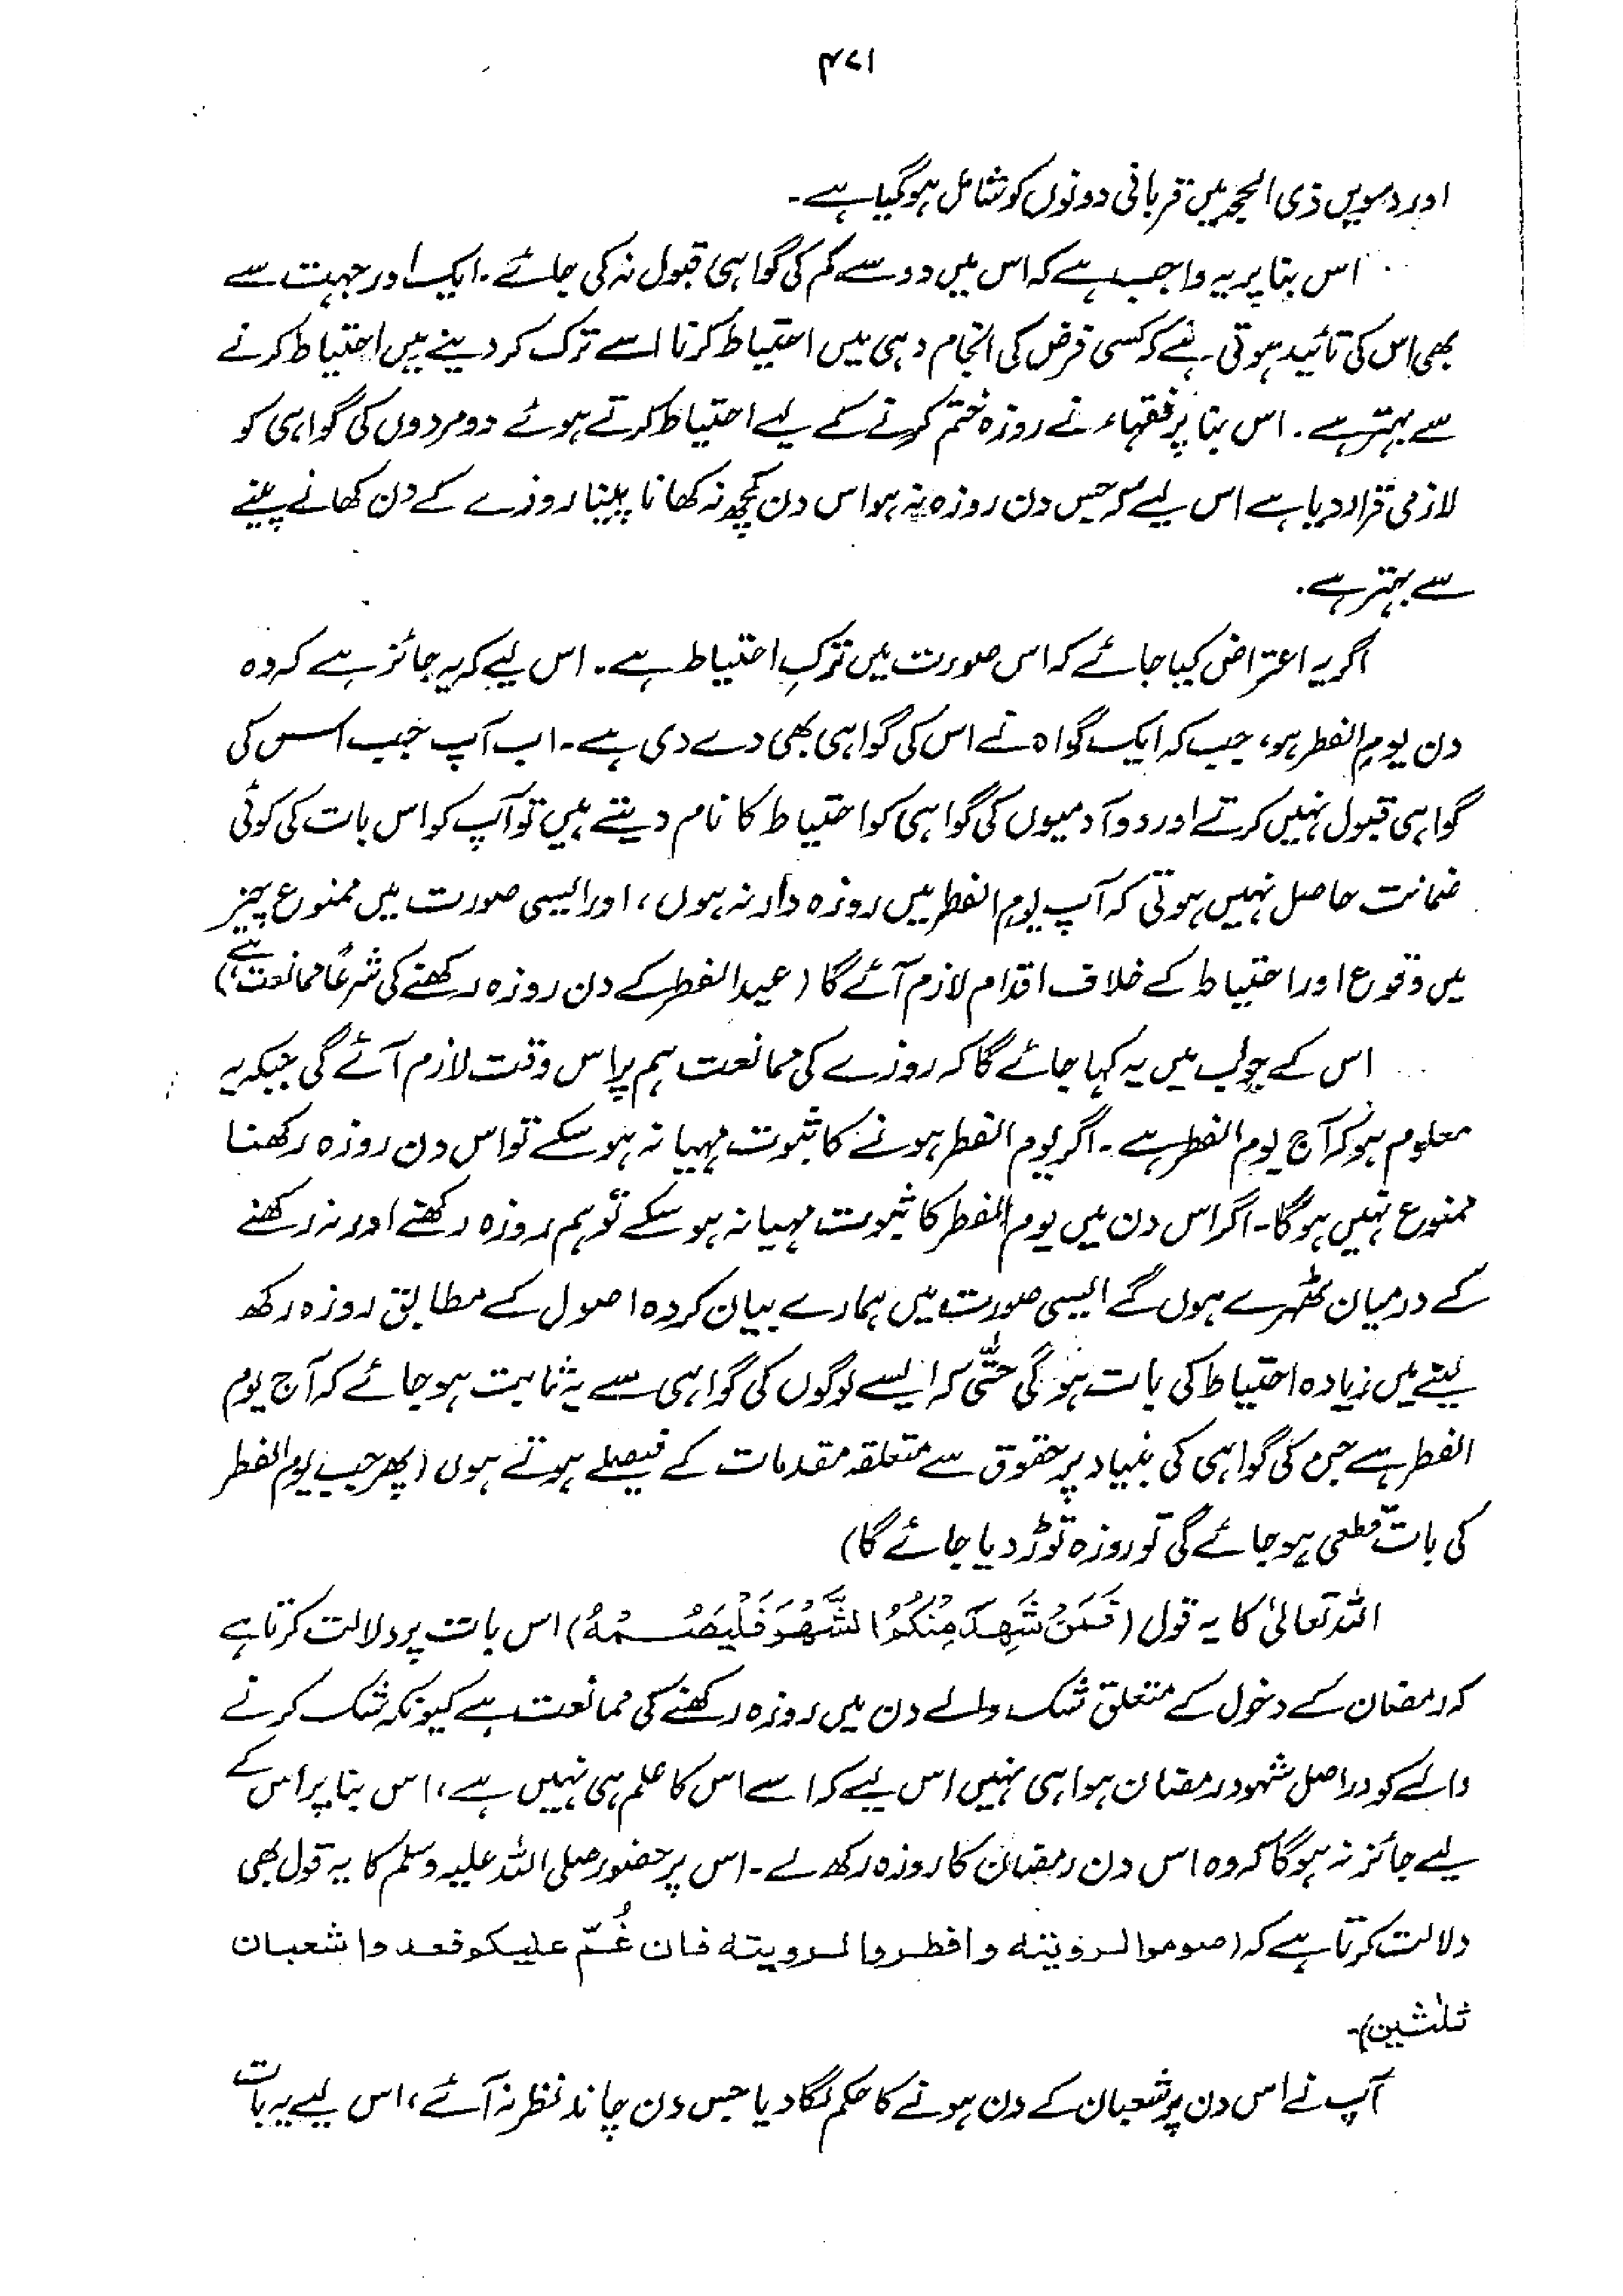 ۴۷۱
اور دسویں ذی الحجہ میں قربانی دونوں کو شامل ہوگیا ہے۔
اس بنا پر یہ واجب ہے کہ اس میں دو سے کم کی گواہی قبول نہ کی جائے۔ ایک اور جہت سے
بھی اس کی تائید ہوتی ہے کہ کسی فرض کی انجام دہی میں احتیاط کرنا اسے ترک کر دینے میں احتیاط کرنے
سے بہتر ہے۔ اس بنا پر فقہاء نے روزہ ختم کرنے کے لیے احتیاط کرتے ہوئے دو مردوں کی گواہی کو
لازمی قرار دیا ہے اس لیے کہ جس دن روزہ نہ ہو اس دن کچھ نہ کھانا پینا روزے کے دن کھانے پینے
سے بہتر ہے۔
اگر یہ اعتراض کیا جائے کہ اس صورت میں ترکِ احتیاط ہے۔ اس لیے کہ یہ جائز ہے کہ وہ
دن یومِ الفطر ہو، جب کہ ایک گواہ نے اس کی گواہی بھی دے دی ہے۔ اب آپ جب اس کی
گواہی قبول نہیں کرتے اور دو آدمیوں کی گواہی کو احتیاط کا نام دیتے ہیں تو آپ کو اس بات کی کوئی
ضمانت حاصل نہیں ہوتی کہ آپ یوم الفطر میں روزہ دار نہ ہوں، اور ایسی صورت میں ممنوع چیز
میں وقوع اور احتیاط کے خلاف اقدام لازم آئے گا (عید الفطر کے دن روزہ رکھنے کی شرعًا ممانعت ہے)
اس کے جواب میں یہ کہا جائے گا کہ روزے کی ممانعت ہم پر اس وقت لازم آئے گی جبکہ یہ
معلوم ہو کہ آج یوم الفطر ہے۔ اگر یوم الفطر ہونے کا ثبوت مہیا نہ ہو سکے تو اس دن روزہ رکھنا
ممنوع نہیں ہوگا۔ اگر اس دن میں یوم الفطر کا ثبوت مہیا نہ ہو سکے تو ہم روزہ رکھنے اور نہ رکھنے
کے درمیان ٹھہرے ہوں گے ایسی صورت میں ہمارے بیان کردہ اصول کے مطابق روزہ رکھ
لینے میں زیادہ احتیاط کی بات ہو گی حتّٰی کہ ایسے لوگوں کی گواہی سے یہ ثابت ہو جائے کہ آج یوم
الفطر ہے جن کی گواہی کی بنیاد پر حقوق سے متعلقہ مقدمات کے فیصلے ہوتے ہوں (پھر جب یوم الفطر
کی بات قطعی ہو جائے گی تو روزہ توڑ دیا جائے گا)
اللہ تعالیٰ کا یہ قول (فَمَنْ شَهِدَ مِنْكُمُ الشَّهْرَ فَلْيَصُمْهُ) اس بات پر دلالت کرتا ہے
کہ رمضان کے دخول کے متعلق شک والے دن میں روزہ رکھنے کی ممانعت ہے کیونکہ شک کرنے
والے کو دراصل شہود رمضان ہوا ہی نہیں اس لیے کہ اسے اس کا علم ہی نہیں ہے، اس بنا پر اس کے
لیے جائز نہ ہوگا کہ وہ اس دن رمضان کا روزہ رکھ لے۔ اس پر حضور صلی اللہ علیہ وسلم کا یہ قول بھی
دلالت کرتا ہے کہ (صوموا لرؤيته وافطروا لرويته فان غُمّ عليكم فعدوا شعبان
ثلٰثین)۔
آپ نے اس دن پر شعبان کے دن ہونے کا حکم لگا دیا جس دن چاند نظر نہ آئے، اس لیے یہ بات